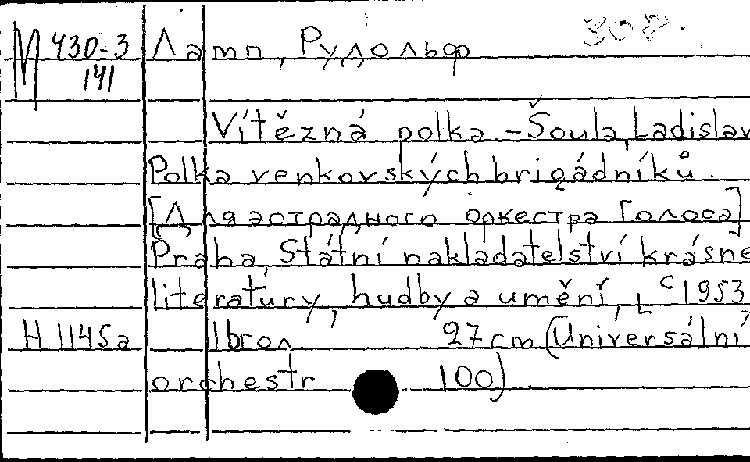 М 430-3 Ламп, Рудольф
141
Vítězná polka - Šoula, Ladislav
Polka venkovských brigádníků.
[Для эстрадного оркестра голоса]
Praha, Státní nakladatelství krásné
literatury, hudby a umění, c 1953
Н 1145а 27 cm (Universální
orchestr 100)